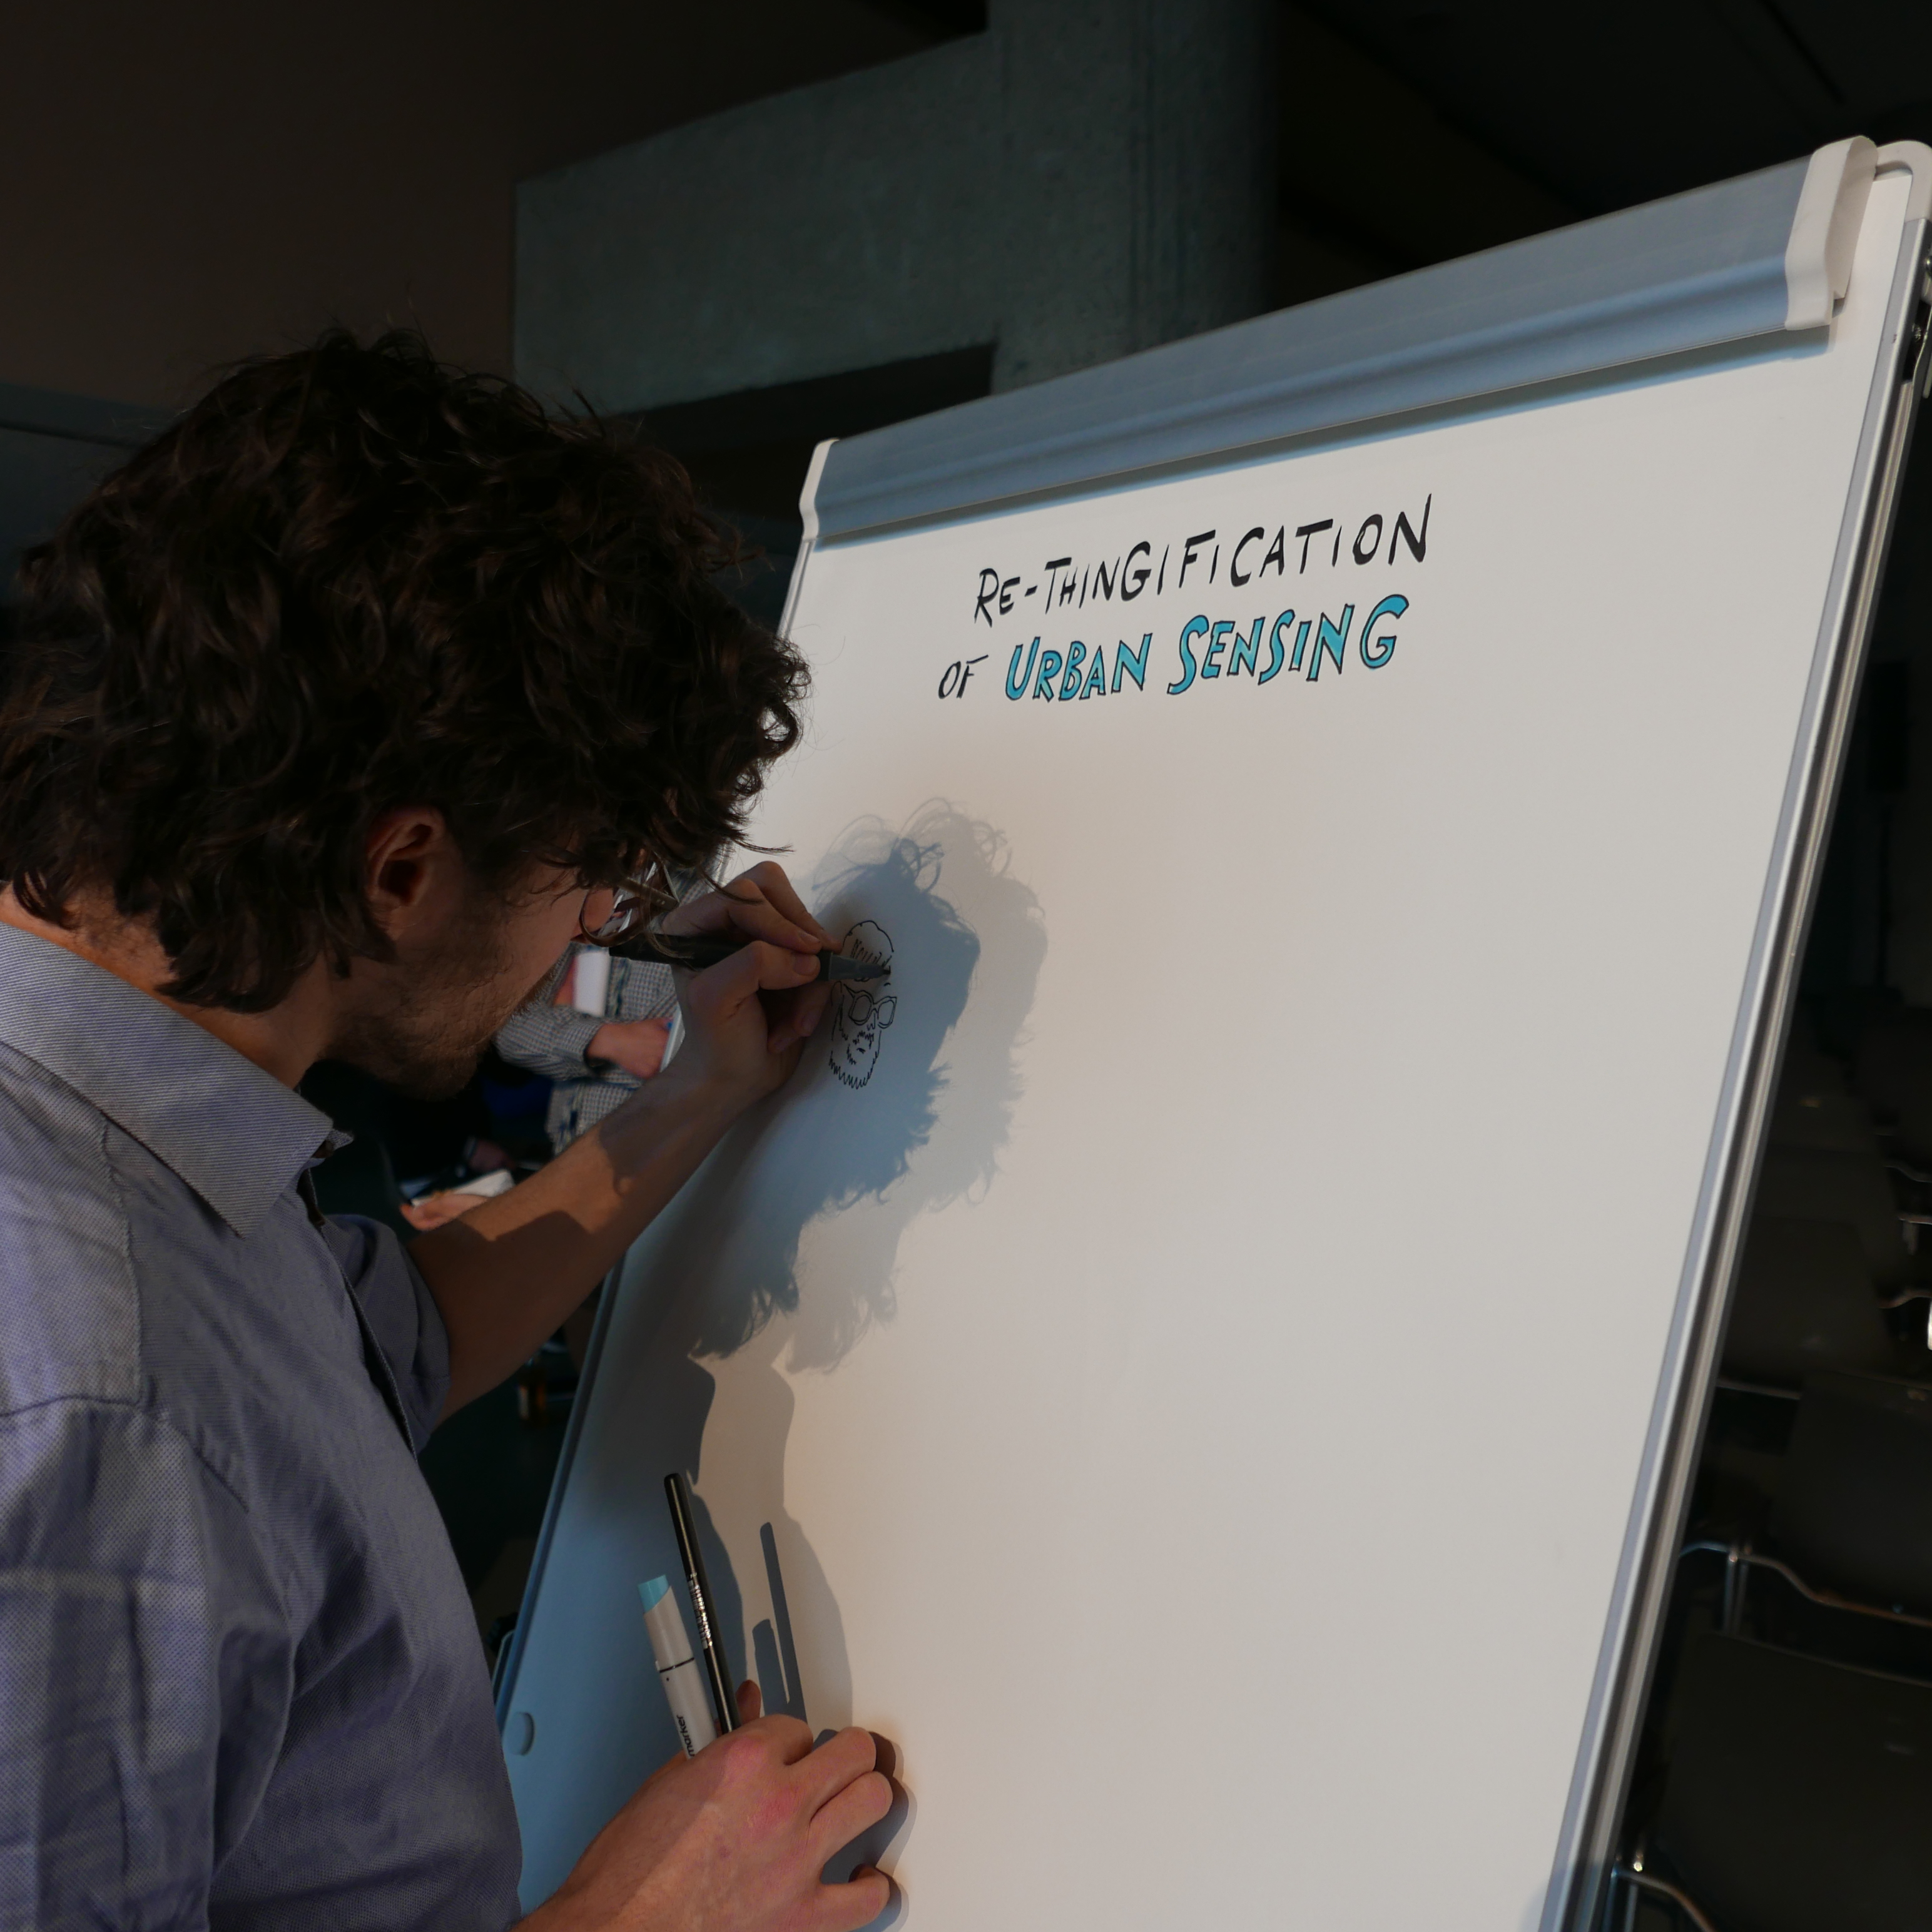 RE-THINGIFICATION
OF URBAN SENSING
marker